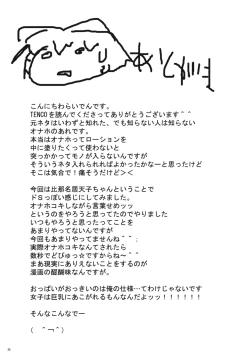 ありがとう
こんにちわらいでんです。
TENCOを読んでくださってありがとうございます＾＾
元ネタはいわずと知れた、でも知らない人は知らない
オナホのあれです。
本当はオナホってローションを
中に塗りたくって使わないと
突っかかってモノが入らないんですが
そういうネタ入れられればよかったかなーと思ったけど
そこは気合で！痛そうだけど＞＜
今回は比那名居天子ちゃんということで
ドSっぽい感じにしてみました。
オナホコキしながら言葉せめって
というのをやろうと思ってたのでやりました
いつもやろうと思ってたことを
あまりやってないんですが
今回もあまりやってませんね＾~；
実際オナホコキなんてされたら
数秒でどぴゅっ☆ですからね~＾＾
まあ現実にありえないことをするのが
漫画の醍醐味なんですが。
おっぱいがおっきいのは俺の仕様…てわけじゃないです
女子は巨乳にあこがれるもんなんだよッッ！！！！！！
そんなこんなでー
(　＾￢＾)